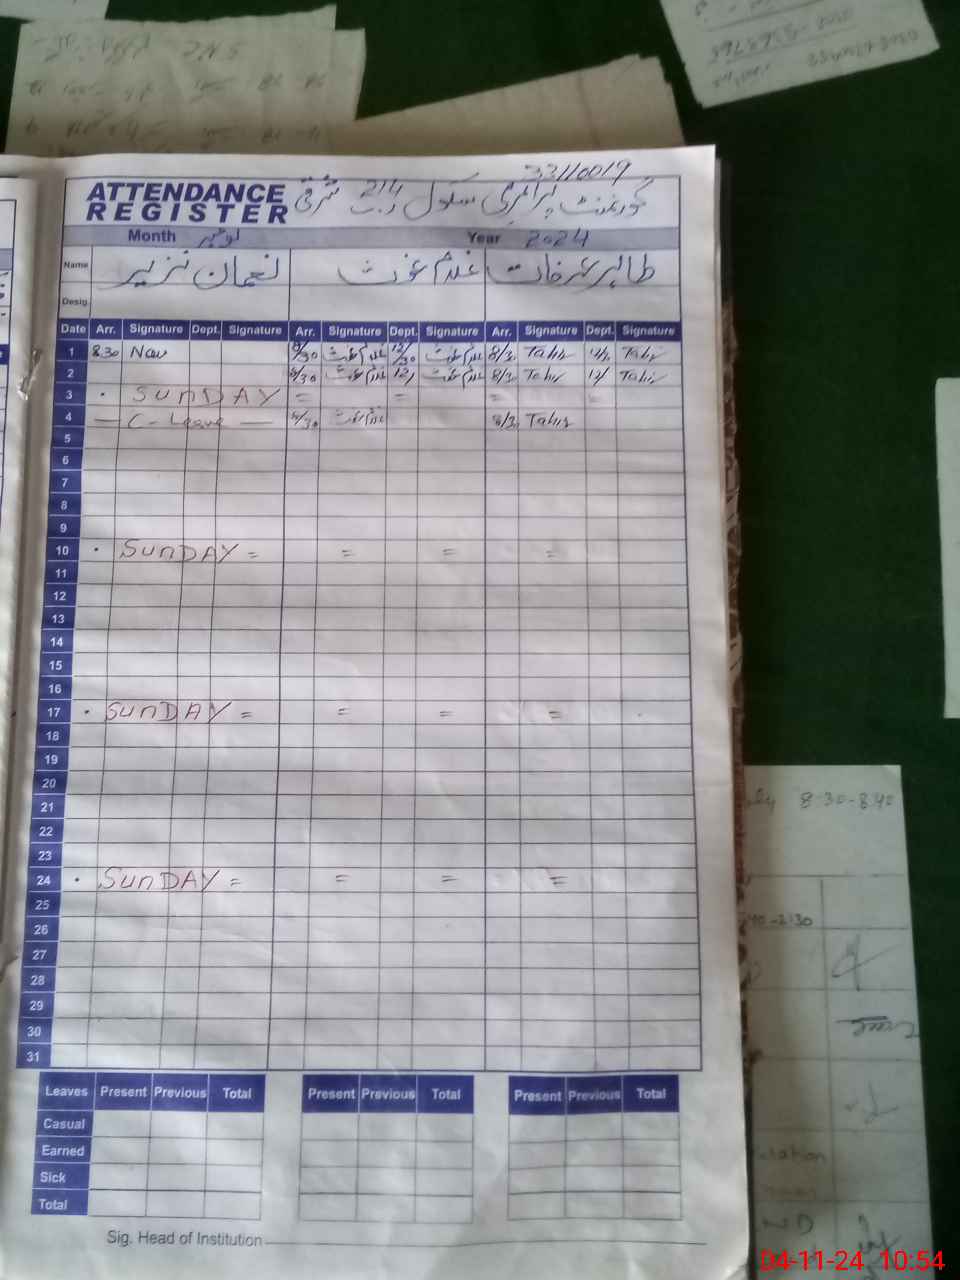 33110019
ATTENDANCE
REGISTER
گورنمنٹ پرائمری سکول 214 ر۔ب شرقی
Month نومبر Year 2024
Name نعمان نزیر غلام غوث طاہر عرفات
Desig.
Date Arr. Signature Dept. Signature Arr. Signature Dept. Signature Arr. Signature Dept. Signature
1 8:30 8/30 غلام غوث 12/30 غلام غوث 8/30 Tahir 12/ Tahir
2 8/30 غلام غوث 12/ غلام غوث 8/30 Tahir 12/ Tahir
3 SUNDAY = = = =
4 — C-Leave — 8/30 غلام غوث 8/30 Tahir
5
6
7
8
9
10 SUNDAY = = = =
11
12
13
14
15
16
17 SUNDAY = = = =
18
19
20
21
22
23
24 SUNDAY = = = =
25
26
27
28
29
30
31
Leaves Present Previous Total Present Previous Total Present Previous Total
Casual
Earned
Sick
Total
Sig. Head of Institution
8:30-8:40
04-11-24 10:54